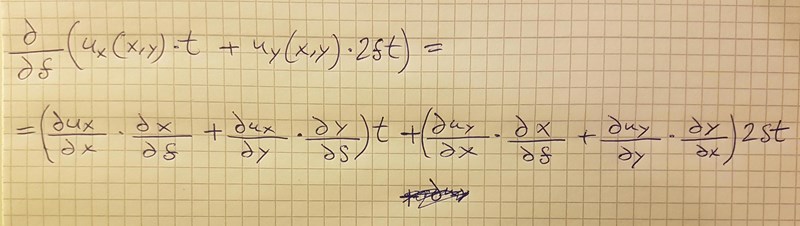 ∂/∂s (u_x(x,y)·t + u_y(x,y)·2st) =
= (∂u_x/∂x · ∂x/∂s + ∂u_x/∂y · ∂y/∂s) t + (∂u_y/∂x · ∂x/∂s + ∂u_y/∂y · ∂y/∂x) 2st